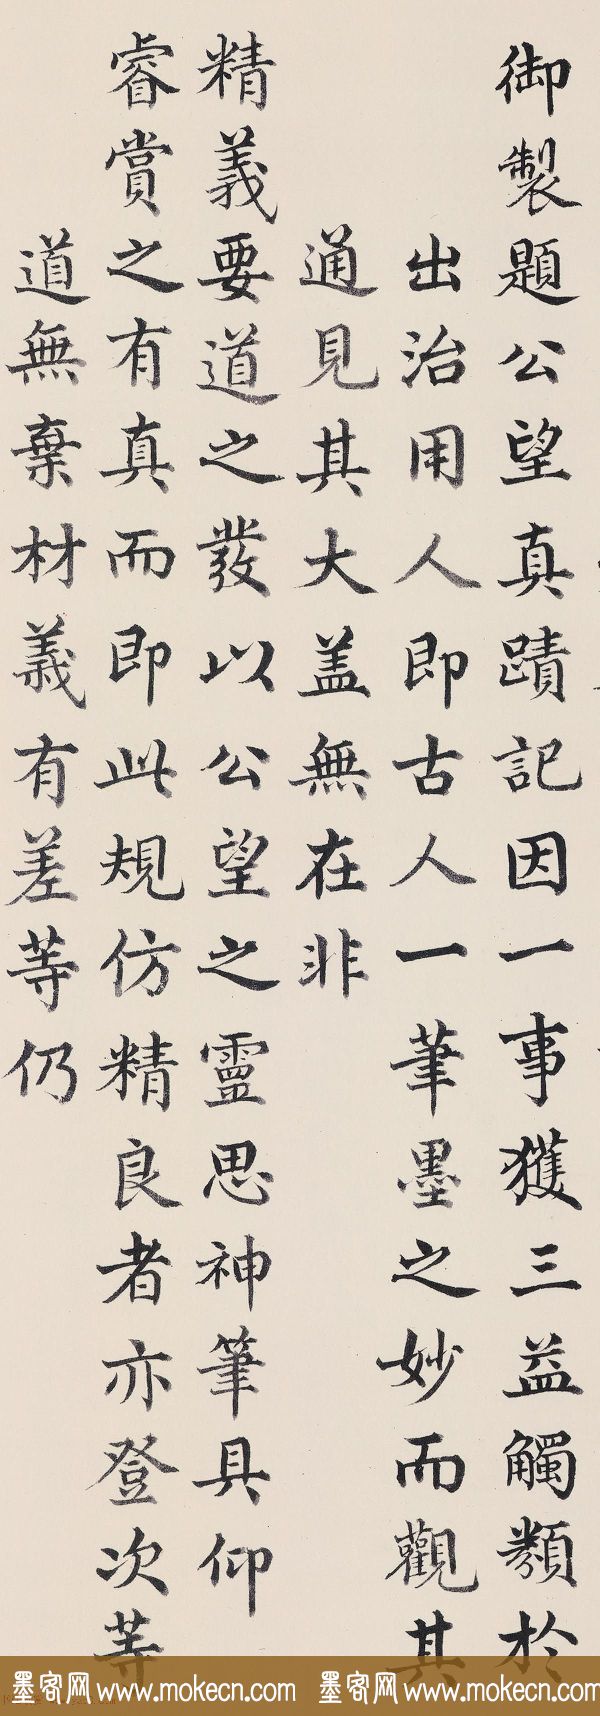 御製題公望真蹟記因一事獲三益觸類於
出治用人即古人一筆墨之妙而觀其
通見其大盖無在非
精義要道之發以公望之靈思神筆具仰
睿賞之有真而即此規仿精良者亦登次等
道無棄材義有差等仍
墨客网 www.mokecn.com 墨客网 www.mokecn.com